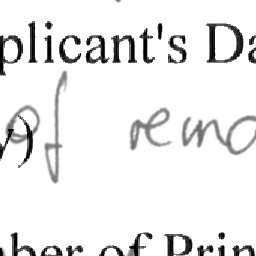 plicant's Da
of remo
y)
ber of Prin